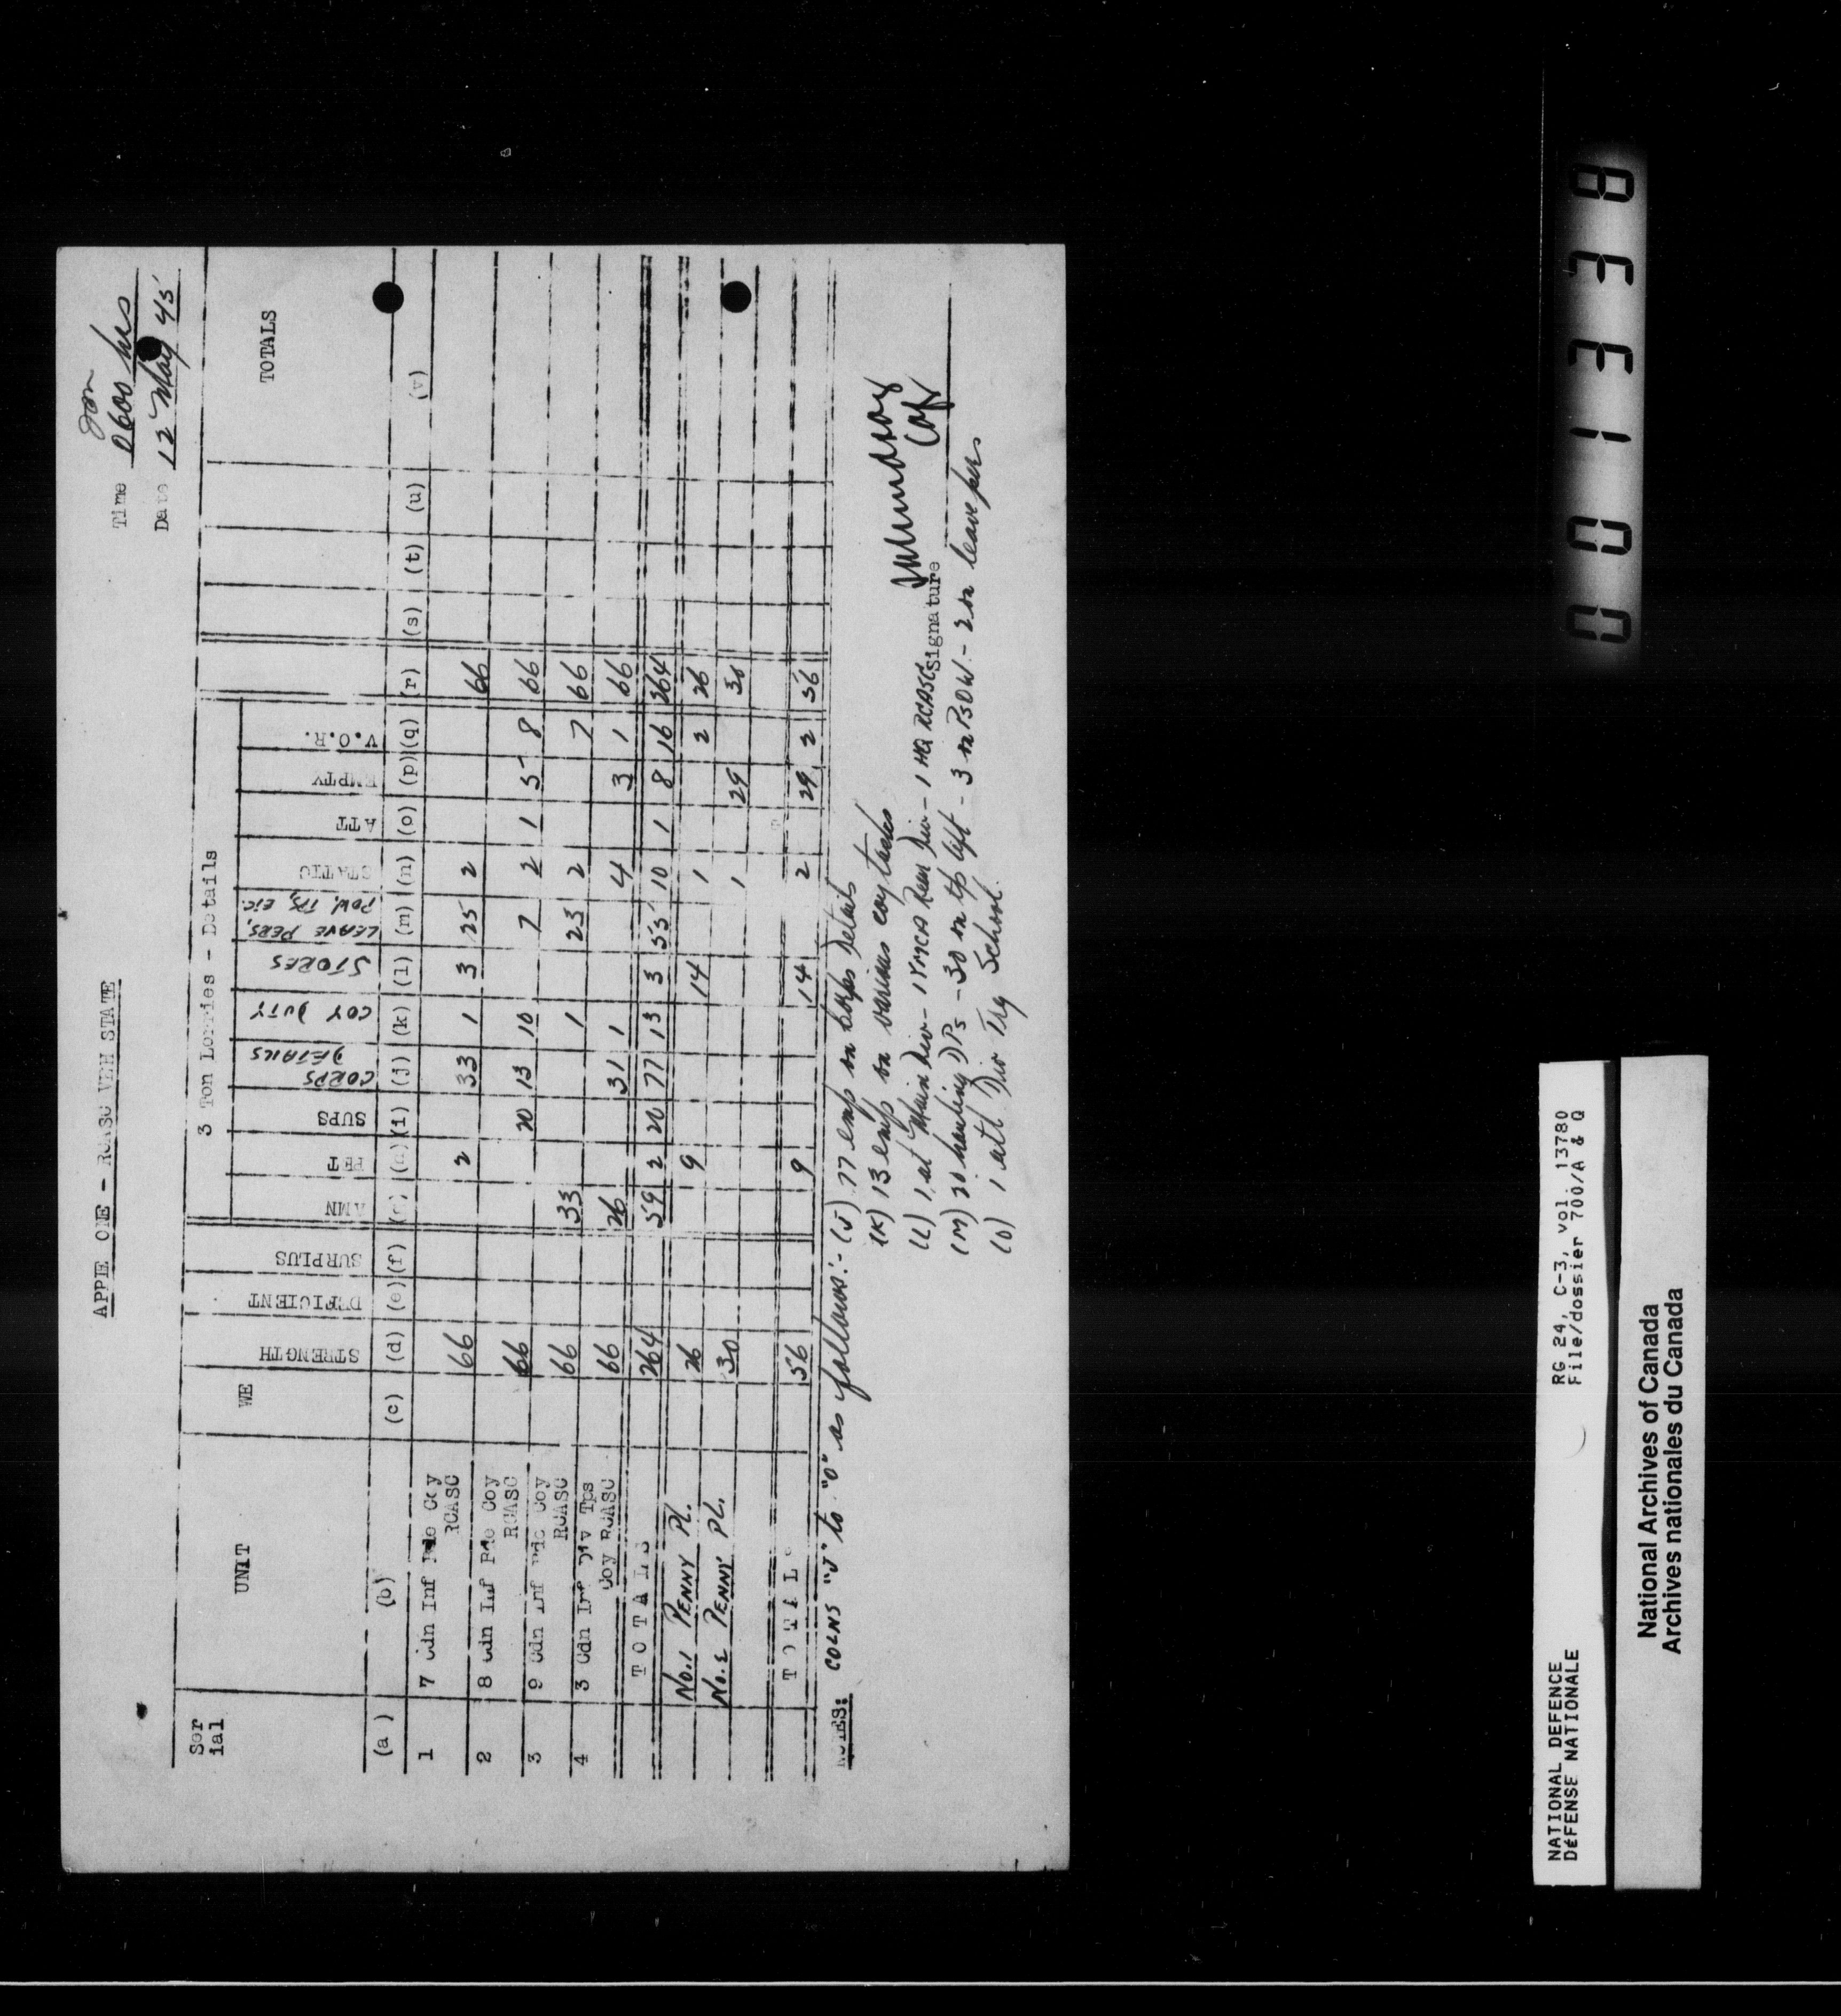 APPIE ONE - RCASC VEH STATE
Time 0600 hrs
Date 12 May 45
3 Ton Lorries - Details
Ser
ial UNIT WE STRENGTH DEFICIENT SURPLUS AMN PET SUPS CORPS DETAILS COY DUTY STORES LEAVE PERS, POW. TPS, ETC. STATIC ATT EMPTY V.O.R. TOTALS
(a) (b) (c) (d) (e) (f) (h) (i) (j) (k) (l) (m) (n) (o) (p) (q) (r) (s) (t) (u) (v)
1 7 Cdn Inf Bde Coy
RCASC 66 2 33 1 3 25 2 66
2 8 Cdn Inf Bde Coy
RCASC 66 20 13 10 7 2 1 5 8 66
3 9 Cdn Inf Bde Coy
RCASC 66 33 1 23 2 7 66
4 3 Cdn Inf Div Tps
Coy RCASC 66 26 31 1 4 3 1 66
TOTALS 264 59 2 20 77 13 3 55 10 1 8 16 264
No.1 PENNY Pl. 26 9 14 1 2 26
No.2 PENNY PL. 30 1 29 30
TOTALS 56 9 14 2 29 2 56
NOTES: COLNS "J" to "O" as follows:- (J) 77 emp on Corps Details
(K) 13 emp on various coy tasks
(L) 1 at Main Div - 1 YMCA Rear Div - 1 HQ RCASC
Signature
(M) 20 hauling DPs - 30 on tp lift - 3 on POW. - 2 on leave pers
(O) 1 att Div Trg School.
001338
NATIONAL DEFENCE
DÉFENSE NATIONALE
RG 24, C-3, vol. 13780
File/dossier 700/A & Q
National Archives of Canada
Archives nationales du Canada